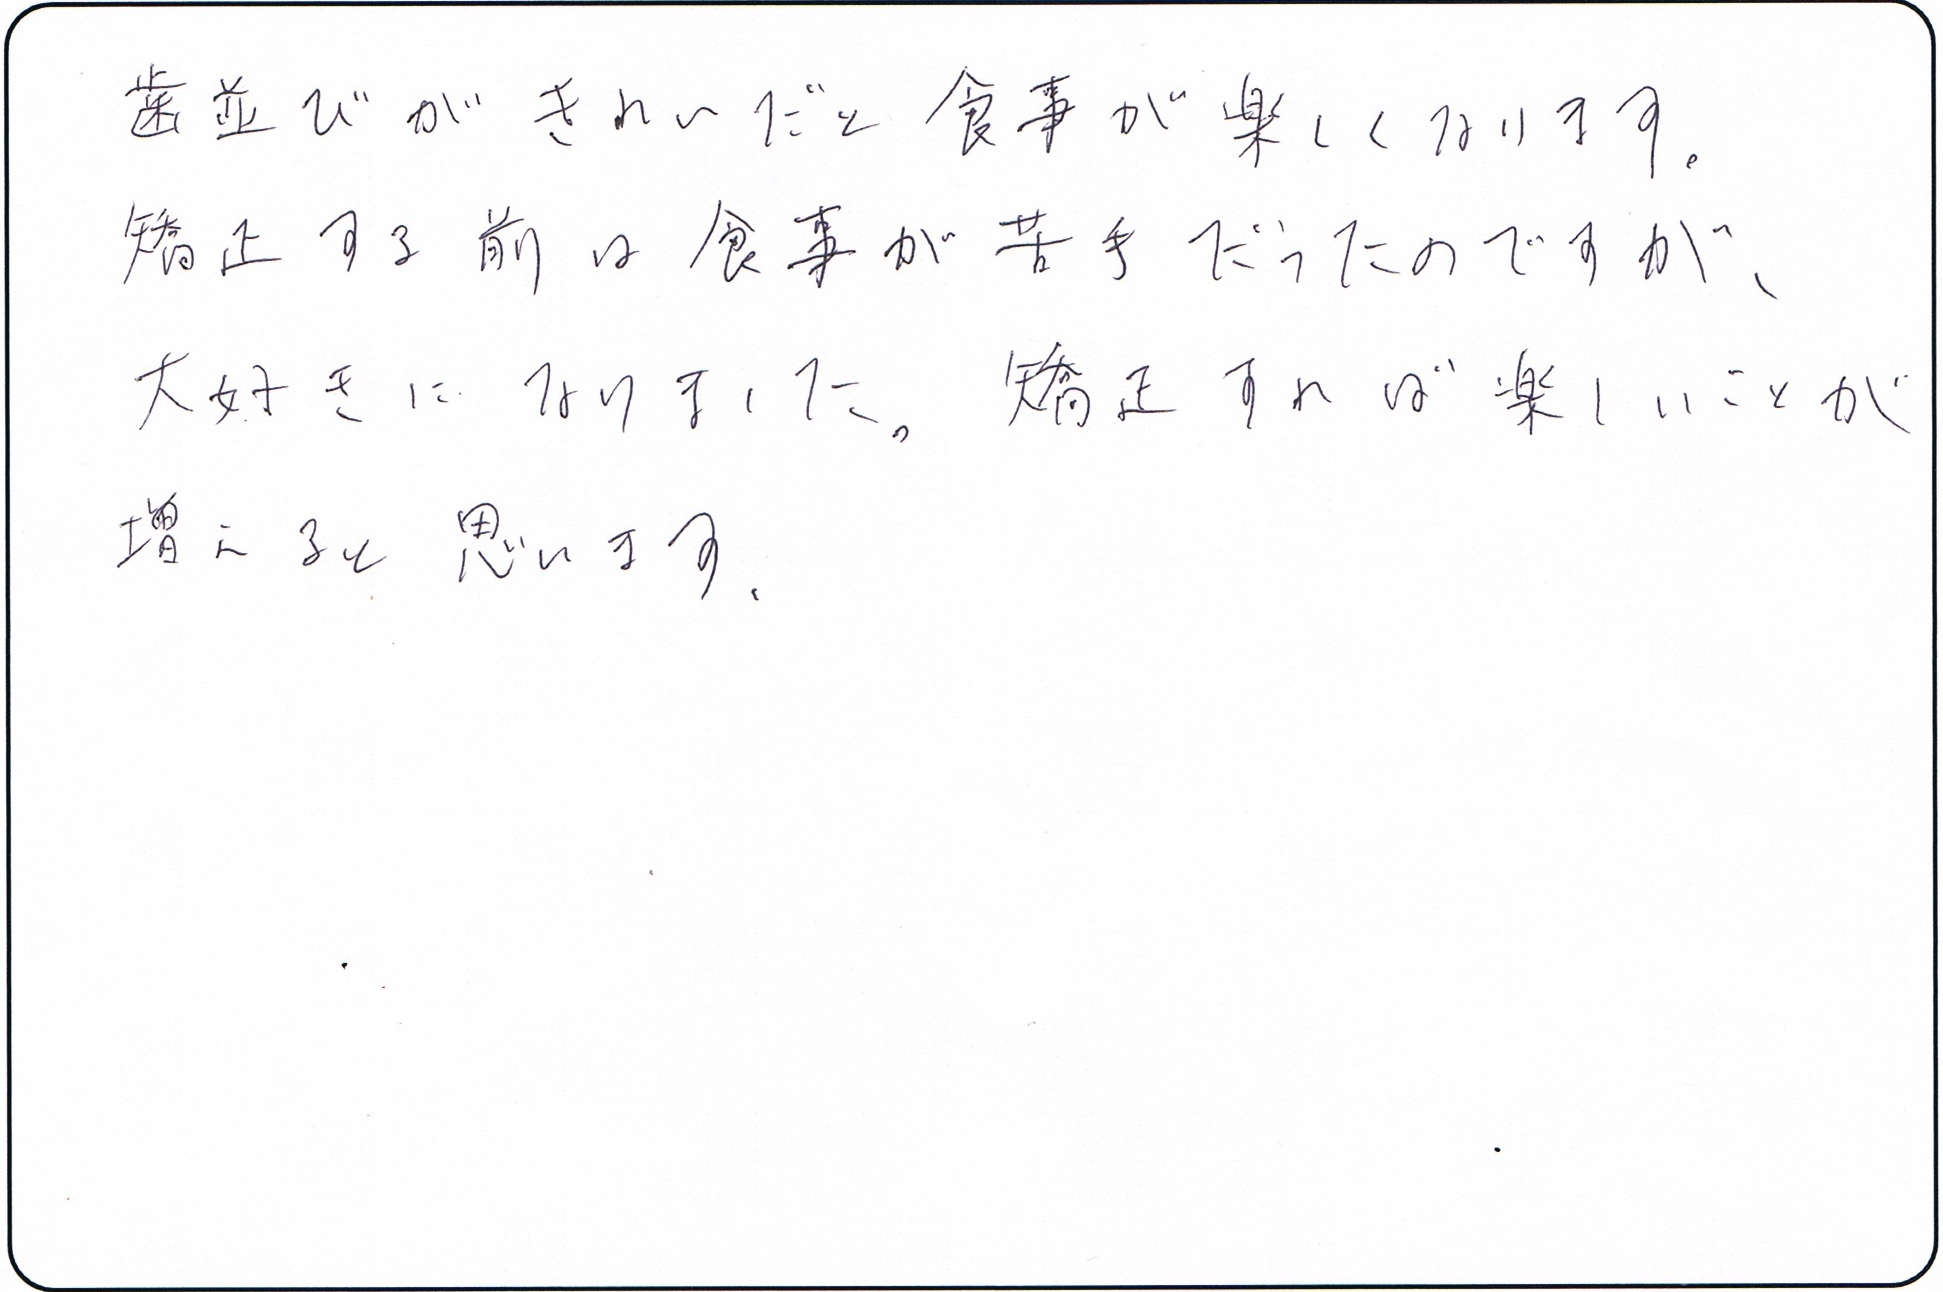 歯並びがきれいだと食事が楽しくなります。
矯正する前は食事が苦手だったのですが、
大好きになりました。矯正すれば楽しいことが
増えると思います。